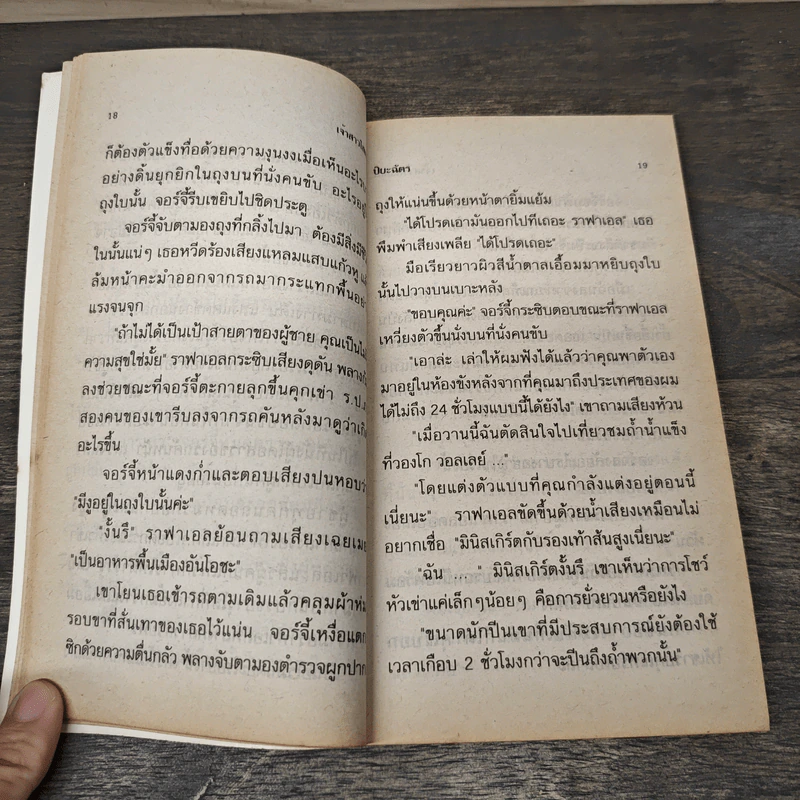 18
เจ้าสาว
ก็ต้องตัวแข็งทื่อด้วยความงุนงงเมื่อเห็นอะไร
อย่างดิ้นยุกยิกในถุงบนที่นั่งคนขับ อะไร
ถุงใบนั้น จอร์จี้รีบเขยิบไปชิดประตู
จอร์จี้จับตามองถุงที่กลิ้งไปมา ต้องมีสิ่งมี
ในนั้นแน่ๆ เธอหวีดร้องเสียงแหลมแสบแก้วหู
ล้มหน้าคะมำออกจากรถมากระแทกพื้นอย่า
แรงจนจุก
"ถ้าไม่ได้เป็นเป้าสายตาของผู้ชาย คุณเป็นไม่
ความสุขใช่มั้ย" ราฟาเอลกระซิบเสียงดุดัน พลาง
ลงช่วยขณะที่จอร์จี้ตะกายลุกขึ้นคุกเข่า ร.ป.ภ
สองคนของเขารีบลงจากรถคันหลังมาดูว่าเกิ
อะไรขึ้น
จอร์จี้หน้าแดงก่ำและตอบเสียงปนหอบ
"มีงูอยู่ในถุงใบนั้นค่ะ"
"งั้นรึ" ราฟาเอลย้อนถามเสียงเฉยเมย
"เป็นอาหารพื้นเมืองอันโอชะ"
เขาโยนเธอเข้ารถตามเดิมแล้วคลุมผ้าห่ม
รอบขาที่สั่นเทาของเธอไว้แน่น จอร์จี้เหงื่อแตก
ซิกด้วยความตื่นกลัว พลางจับตามองตำรวจผูกปาก
ปิยะฉัตร
19
ถุงให้แน่นขึ้นด้วยหน้าตายิ้มแย้ม
"ได้โปรดเอามันออกไปทีเถอะ ราฟาเอล" เธอ
พึมพำเสียงเพลีย "ได้โปรดเถอะ"
มือเรียวยาวผิวสีน้ำตาลเอื้อมมาหยิบถุงใบ
นั้นไปวางบนเบาะหลัง
"ขอบคุณค่ะ" จอร์จี้กระซิบตอบขณะที่ราฟาเอล
เหวี่ยงตัวขึ้นนั่งบนที่นั่งคนขับ
"เอาล่ะ เล่าให้ผมฟังได้แล้วว่าคุณพาตัวเอง
มาอยู่ในห้องขังหลังจากที่คุณมาถึงประเทศของผม
ได้ไม่ถึง 24 ชั่วโมงแบบนี้ได้ยังไง" เขาถามเสียงห้วน
"เมื่อวานนี้ฉันตัดสินใจไปเที่ยวชมถ้ำน้ำแข็ง
ที่วองโก วอลเลย์ ..."
"โดยแต่งตัวแบบที่คุณกำลังแต่งอยู่ตอนนี้
เนี่ยนะ" ราฟาเอลขัดขึ้นด้วยน้ำเสียงเหมือนไม่
อยากเชื่อ "มินิสเกิร์ตกับรองเท้าส้นสูงเนี่ยนะ"
"ฉัน ..." มินิสเกิร์ตงั้นรึ เขาเห็นว่าการโชว์
หัวเข่าแค่เล็กๆน้อยๆ คือการยั่วยวนหรือยังไง
"ขนาดนักปีนเขาที่มีประสบการณ์ยังต้องใช้
เวลาเกือบ 2 ชั่วโมงกว่าจะปีนถึงถ้ำพวกนั้น"